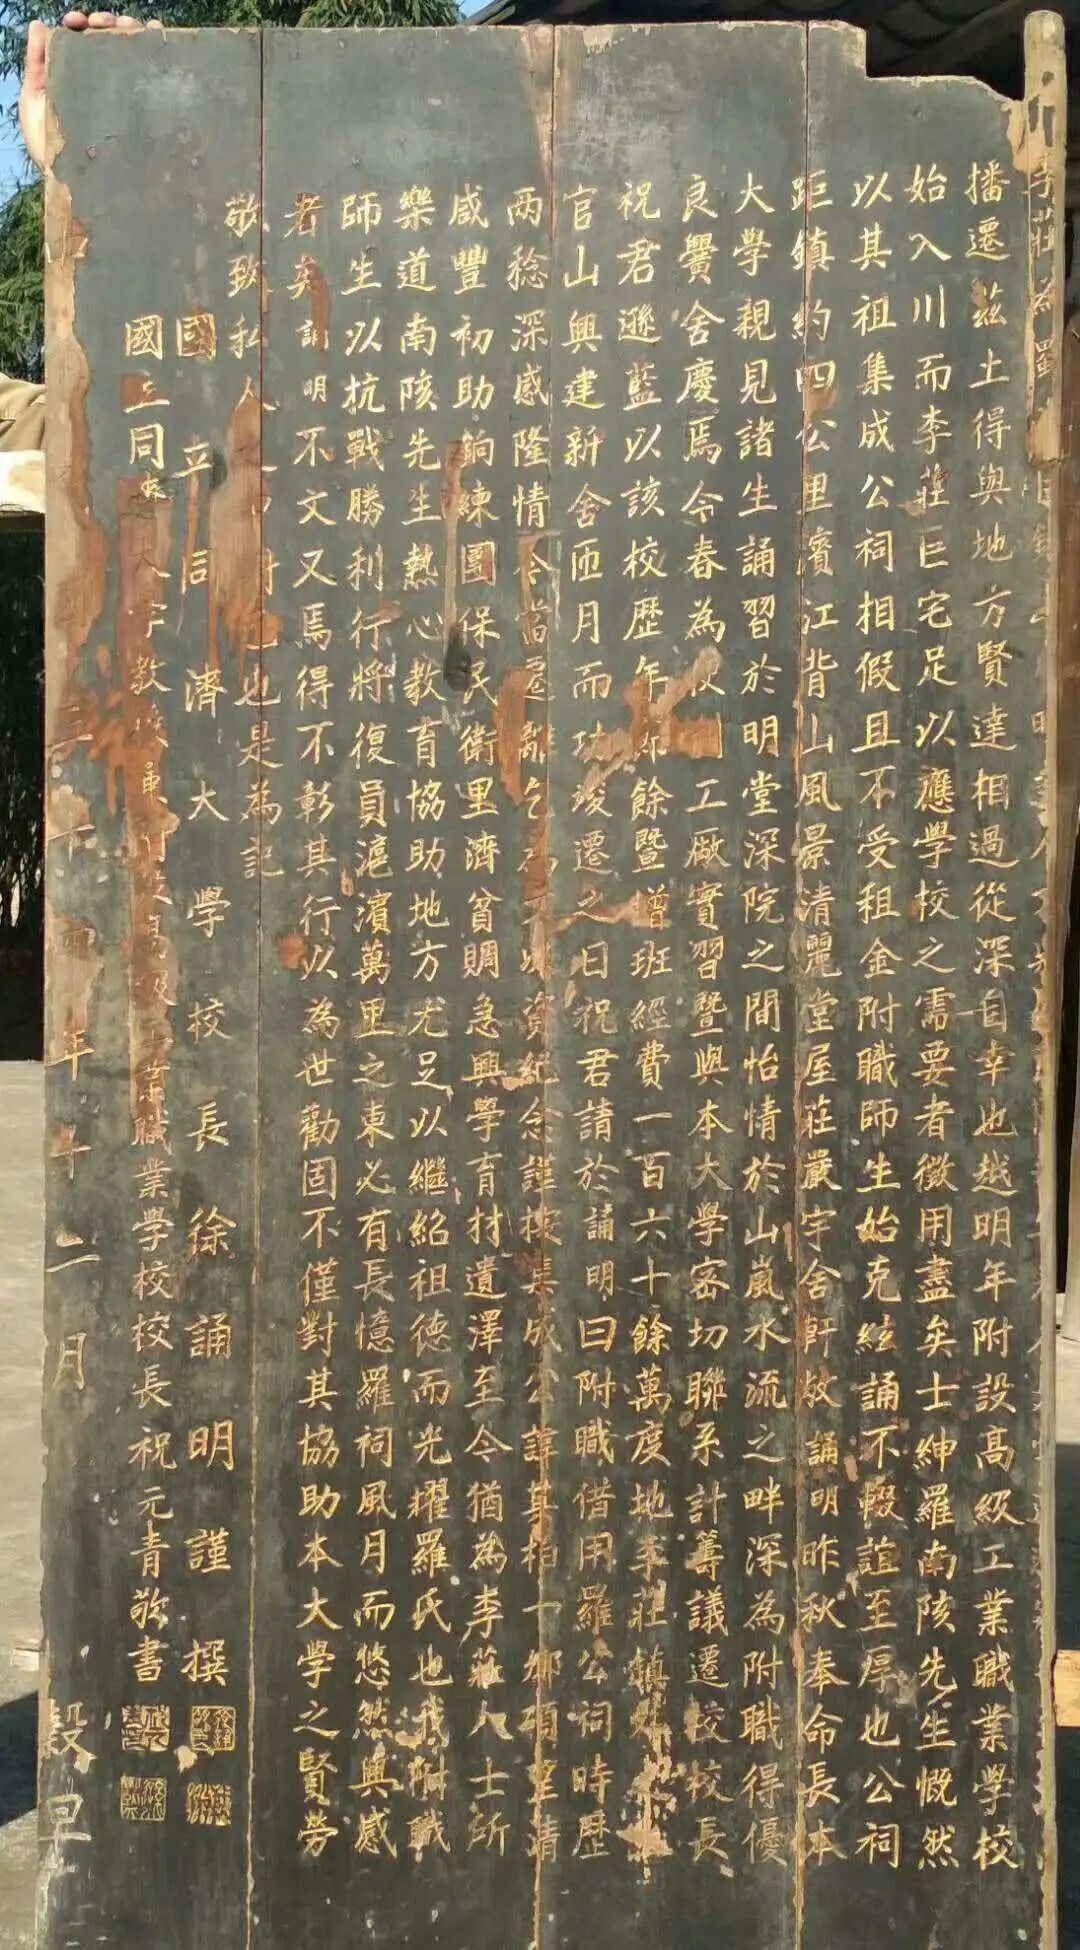 李莊為蜀
播遷茲土得與地方賢達相過從深自幸也越明年附設高級工業職業學校
始入川而李莊巨宅足以應學校之需要者徵用盡矣士紳羅南陔先生慨然
以其祖集成公祠相假且不受租金附職師生始克絃誦不輟誼至厚也公祠
距鎮約四公里濱江背山風景清麗堂屋莊嚴宇舍軒敞誦明昨秋奉命長本
大學親見諸生誦習於明堂深院之間怡情於山嵐水流之畔深為附職得優
良黌舍慶焉今春為便工廠實習暨與本大學密切聯系計籌議遷校校長
祝君遜藍以該校歷年節餘暨增班經費一百六十餘萬度地李莊鎮
官山興建新舍匝月而功竣遷之日祝君請於誦明曰附職借用羅公祠時歷
兩稔深感隆情今當遷離乞為文以資紀念謹按集成公諱其柏一鄉碩望清
咸豐初助餉練團保民衛里濟貧賙急興學育材遺澤至今猶為李莊人士所
樂道南陔先生熱心教育協助地方尤足以繼紹祖德而光耀羅氏也我附職
師生以抗戰勝利行將復員滬濱萬里之東必有長憶羅祠風月而悠然興感
者矣誦明不文又焉得不彰其行以為世勸固不僅對其協助本大學之賢勞
敬致私人之也是為記
國立同濟大學校長徐誦明謹撰
國立同濟大學教授兼附設高級工業職業學校校長祝元青敬書
三十四年十二月 穀旦